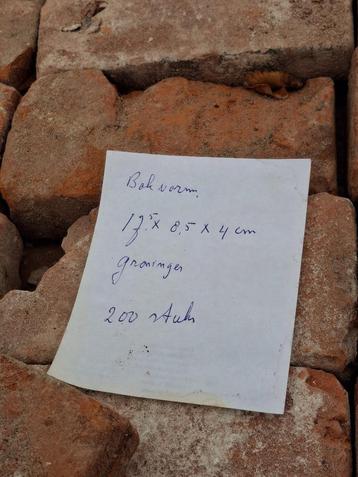 Bakvorm.
17.5 x 8,5 x 4 cm
groninger
200 stuks